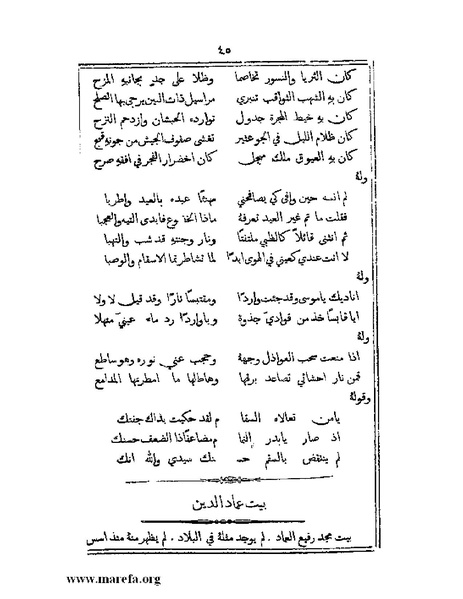 ٤٥
كان الثريا والنسور تخاصما وظلا على جذر بجانبه المزح
كان به الشهب الثواقب تنبري مراسيل ذات البين يرجى بها الصلح
كان به خيط المجرة جدول توارده الحبشان وازدحم النزح
كان ظلام الليل في الجو عثير تغشى صفوف الجيش من جونه قمح
كان به العيوق ملك مبجل كان اخضرار الفجر في افقه صرح
وله
لم انسه حين وافى كي يصافحني مهنئا عبده بالعيد واطربا
فقلت ما تم غير العيد تعرفه ماذا الخنوع فابدى التيه والعجبا
ثم انثنى قائلاً كالظبي ملتفتا ونار وجنته قد شب والتهبا
لا انت عندي كعيني في الهوى ابدًا لما تشاطرتما الاسقام والوصبا
وله
اناديك ياموسى وقد جئت واردًا ومقتبسًا نارًا وقد قيل لا ولا
ايا قابسًا خذ من فوادي جذوة وياواردًا رد ماء عيني منهلا
وله
اذا منعت سحب العواذل وجهه وحجب عني نوره وهو ساطع
فمن نار احشائي تصاعد برقها وهاطلها ما امطرتها المدامع
وقوله
يامن تعالاه السقا م لقد حكيت بذاك جفنك
اذ صار يابدر الما م مضاعفًا ذا الضعف حسنك
لم ينتقض بالسقم حسـ نك سيدي والله انك
بيت عماد الدين
بيت مجد رفيع العماد . لم يوجد مثله في البلاد . لم يظهر منه منذ اسس
www.marefa.org